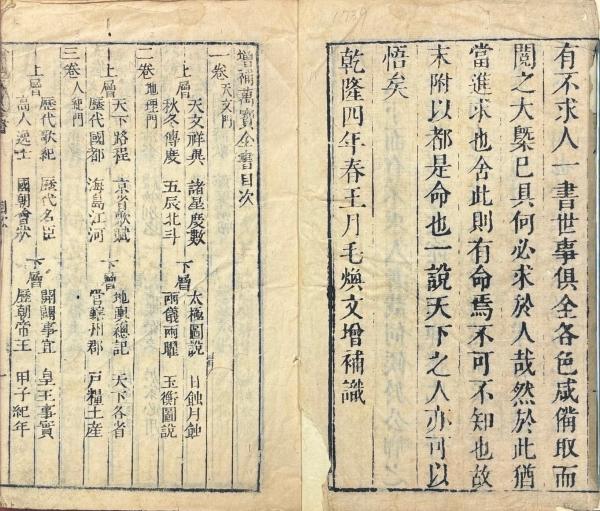 1739
有不求人一書世事俱全各色咸備取而
閱之大槩已具何必求於人哉然於此猶
當進求也舍此則有命焉不可不知也故
末附以都是命也一說天下之人亦可以
悟矣
乾隆四年春王月毛煥文增補識
增補萬寶全書目次
一卷 天文門
上層 天文祥異 諸星度數 下層 太極圖說 日蝕月蝕
秋冬傳慶 五辰北斗 兩儀兩曜 玉衡圖說
二卷 地理門
上層 天下路程 京省歌賦 下層 地輿總記 天下各省
歷代國都 海島江河 當轄州郡 戶糧土產
三卷 人紀門
上層 歷代歌紀 歷代名臣 下層 開闢事宜 皇王事實
高人逸士 國朝會狀 歷朝帝王 甲子紀年